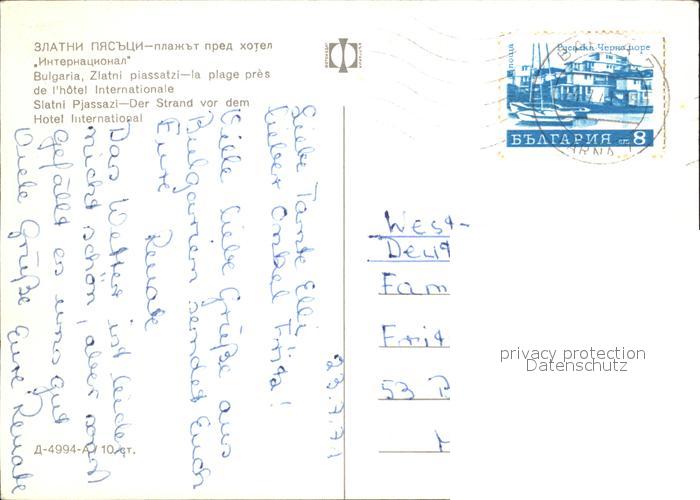 ЗЛАТНИ ПЯСЪЦИ—плажът пред хотел
„Интернационал"
Bulgaria, Zlatni piassatzi—la plage près
de l'hôtel Internationale
Slatni Pjassazi—Der Strand vor dem
Hotel International
поща Русалка Черно море
БЪЛГАРИЯ ст. 8
23.7.71
Liebe Tante Elli,
lieber Onkel Fritz!
Viele liebe Grüße aus
Bulgarien sendet Euch
Eure Renate
Das Wetter ist leider
nicht schön, aber sonst
gefällt es uns gut
Viele Grüße Eure Renate
West-
Deut
Fam
Frit
53 B
privacy protection
Datenschutz
Д-4994-А / 10 ст.